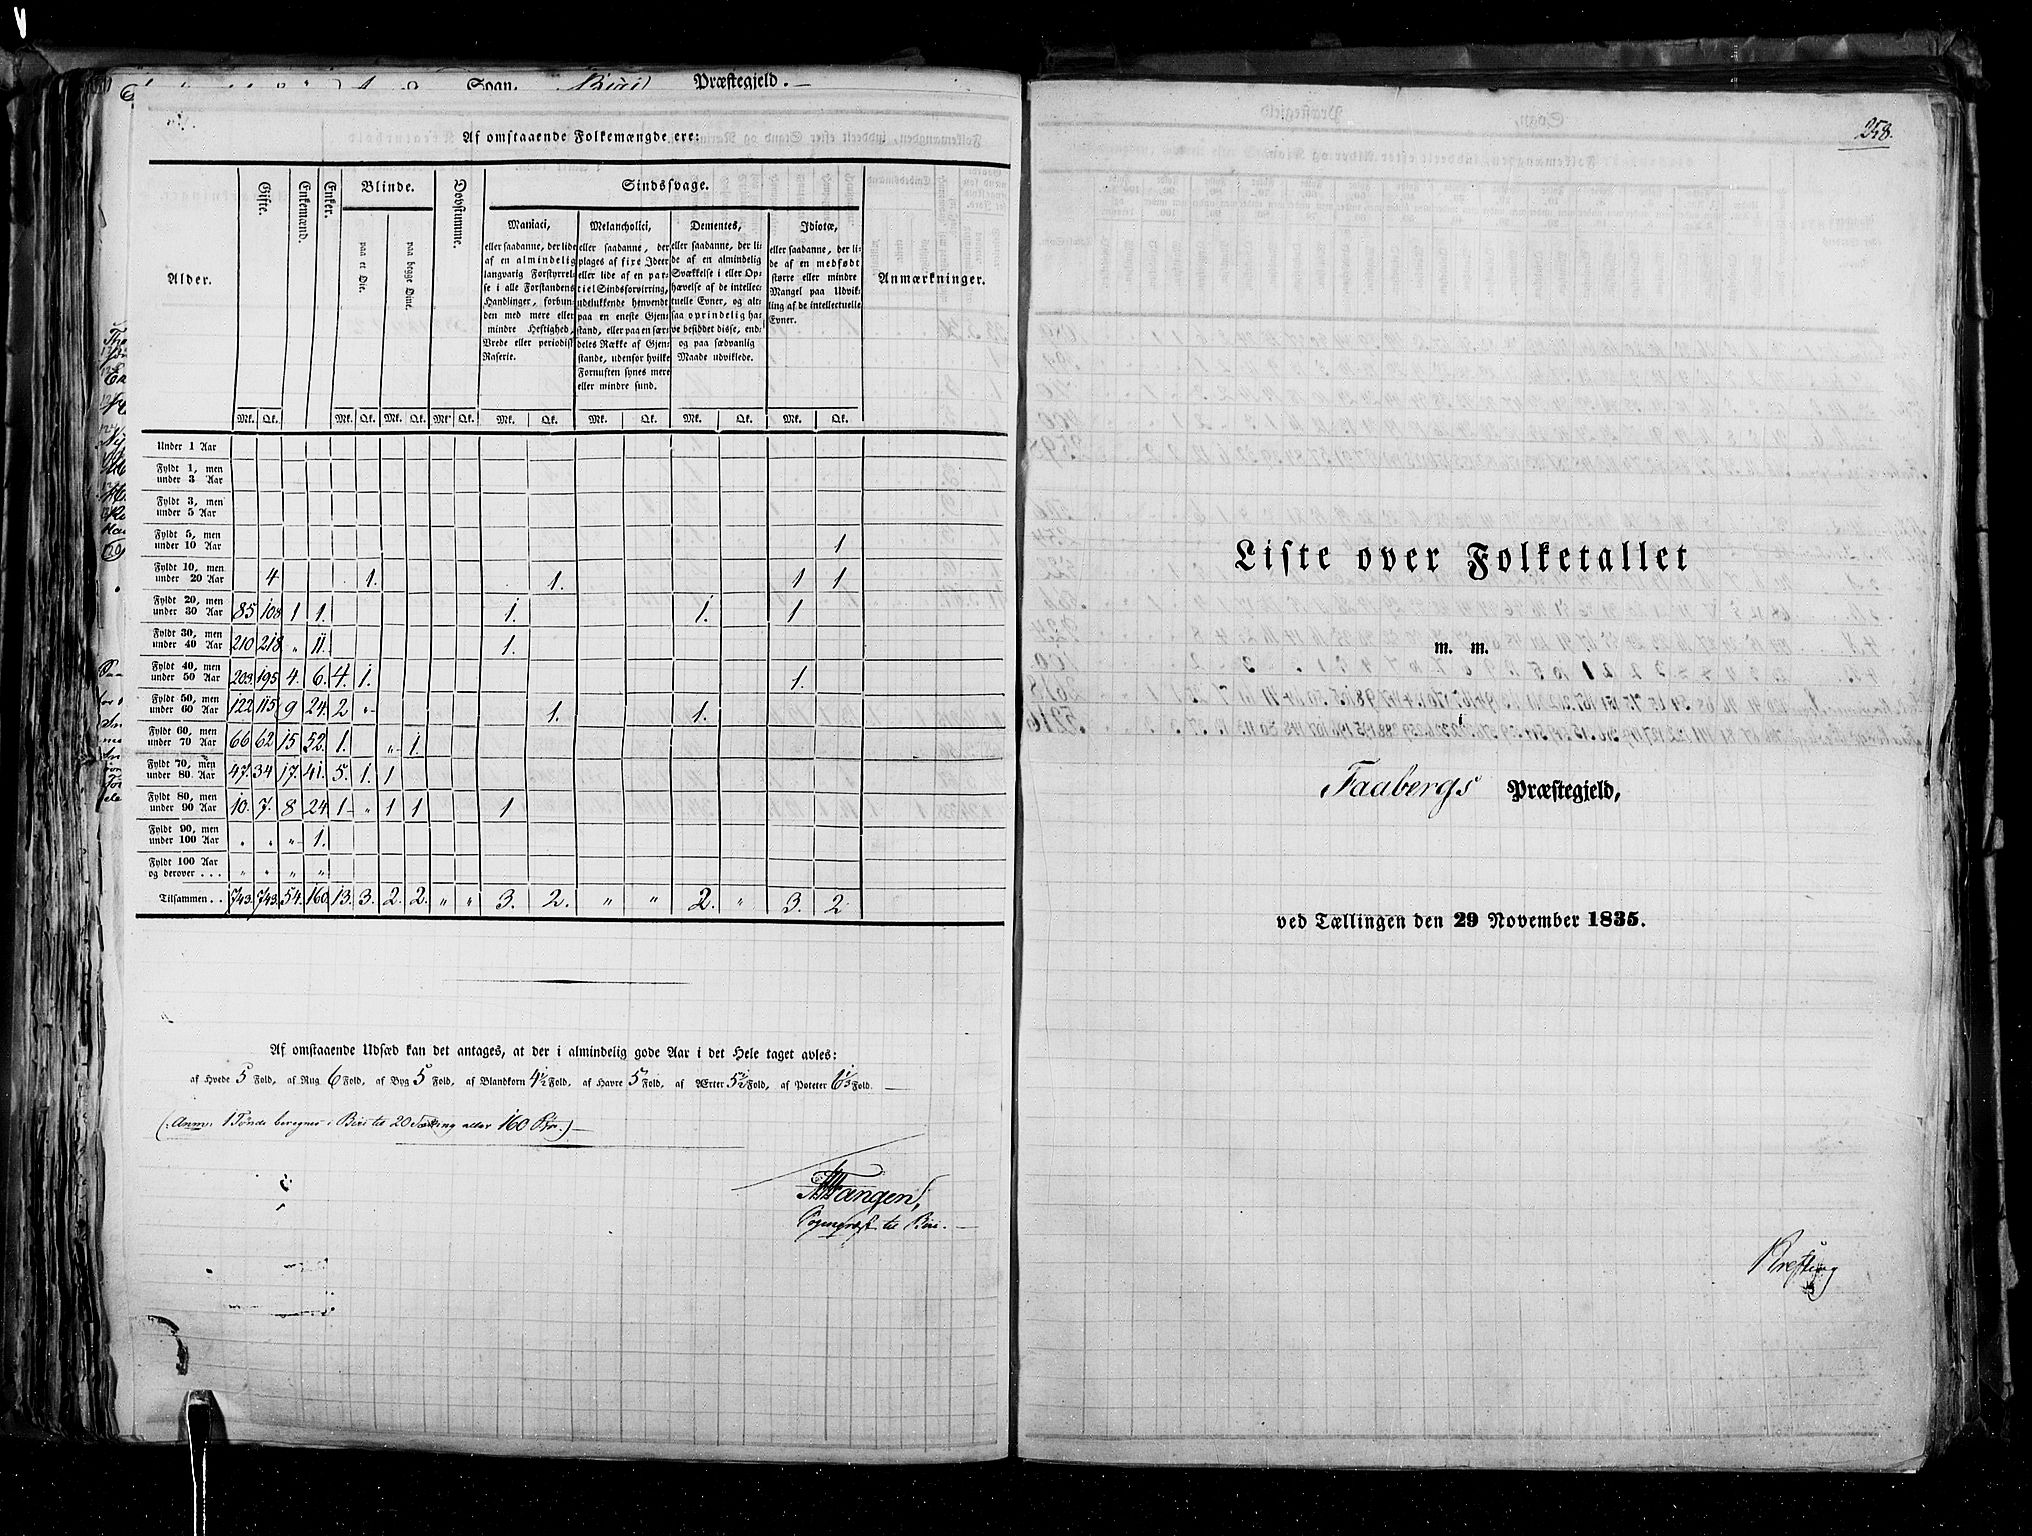 Sogn, Biri Præstegjeld.
Af omstaaende Folkemængde ere:
Alder.
Gifte.
Enkemænd.
Enker.
Blinde.
paa et Øie.
paa begge Øine.
Døvstumme.
Sindssvage.
Maniaci,
eller saadanne, der lide
af en almindelig
langvarig Forstyrrel-
se i alle Forstandens
Handlinger, forbun-
den med mere eller
mindre Heftighed,
Vrede eller periodisk
Raserie.
Melancholici,
eller saadanne, der
plages af fixe Ideer
eller lide af en par-
tiel Sindsforvirring,
udelukkende henvendt
paa en eneste Gjen-
stand, eller paa en sær-
deles Række af Gjen-
stande, udenfor hvilke
Fornuften synes mere
eller mindre sund.
Dementes,
eller saadanne, der li-
de af en almindelig
Svækkelse i eller Op-
hævelse af de intellec-
tuelle Evner, og alt-
saa oprindelig ha-
ve besiddet disse, end-
og paa sædvanlig
Maade udviklede.
Idiotæ,
eller saadanne, der li-
de af en medfødt
større eller mindre
Mangel paa Udvik-
ling af de intellectuelle
Evner.
Anmærkninger.
Mk. Qk. Mk. Qk. Mk. Qk. Mk. Qk. Mk. Qk. Mk. Qk. Mk. Qk. Mk. Qk.
Under 1 Aar
Fyldt 1, men
under 3 Aar
Fyldt 3, men
under 5 Aar
Fyldt 5, men
under 10 Aar 1
Fyldt 10, men
under 20 Aar 4 1. 1. 1 1
Fyldt 20, men
under 30 Aar 85 108 1 1. 1. 1. 1
Fyldt 30, men
under 40 Aar 210 218 " 11. 1.
Fyldt 40, men
under 50 Aar 203. 195 4. 6. 4. 1. 1.
Fyldt 50, men
under 60 Aar 122 115 9 24. 2 " 1. 1.
Fyldt 60, men
under 70 Aar 66 62 15 52. 1. " 1.
Fyldt 70, men
under 80. Aar 47. 34 17. 41. 5. 1. 1
Fyldt 80, men
under 90 Aar 10. 7. 8 24 1 " 1 1 1
Fyldt 90, men
under 100 Aar " " " 1.
Fyldt 100 Aar
og derover . . . " " " "
Tilsammen . . 743. 743. 54. 160. 13. 3. 2. 2. " " 3. 2. " " 2. " 3. 2
Af omstaaende Udsæd kan det antages, at der i almindelig gode Aar i det Hele taget avles:
af Hvede 5 Fold, af Rug 6 Fold, af Byg 5 Fold, af Blandkorn 4 1/2 Fold, af Havre 5 Fold, af Ærter 5 1/2 Fold, af Poteter 6 1/3 Fold.
(Anm: 1 Tønde beregnes i Biri til 20 Sætting eller 160 Pr.)
Fangen,
Sognepræst til Biri.
258.
Liste over Folketallet
m. m.
i
Faabergs Præstegjeld,
ved Tællingen den 29 November 1835.
Krefting